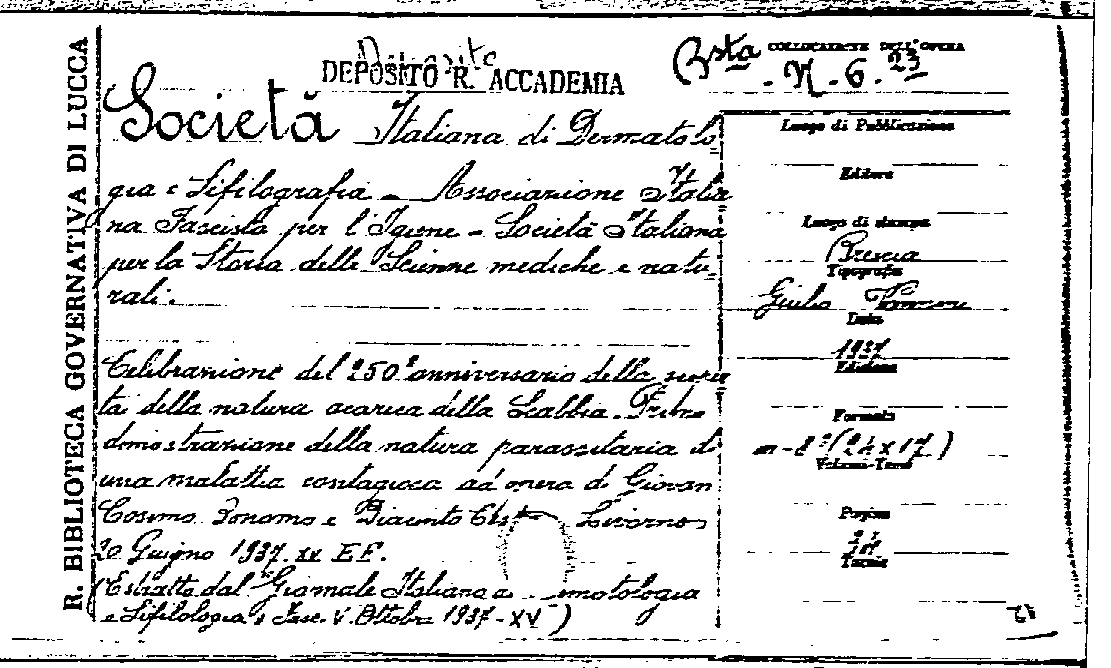 R. BIBLIOTECA GOVERNATIVA DI LUCCA
Deposito
DEPOSITO R. ACCADEMIA
Società Italiana di Dermatolo
gia e Sifilografia - Associazione Italia
na Fascista per l'Igiene - Società Italiana
per la Storia delle Scienze mediche e natu-
rali.
Celebrazione del 250° anniversario della scoper
ta della natura acarica della Scabbia. Prima
dimostrazione della natura parassitaria di
una malattia contagiosa ad opera di Giovan
Cosimo Bonomo e Diacinto Livorno
20 Giugno 1937. XV E.F.
(Estratto dal "Giornale Italiano
e Sifilologia, Fasc. V. Ottobre 1937-XV)
COLLOCAZIONE DELL'OPERA
Bsta - N. 6. 23
Luogo di Pubblicazione
Editore
Luogo di stampa
Brescia
Tipografia
Giulio
Data
1937
Edizione
Formato
in-8° (24 x 17)
Volumi-Tomi
Pagine
Tavole